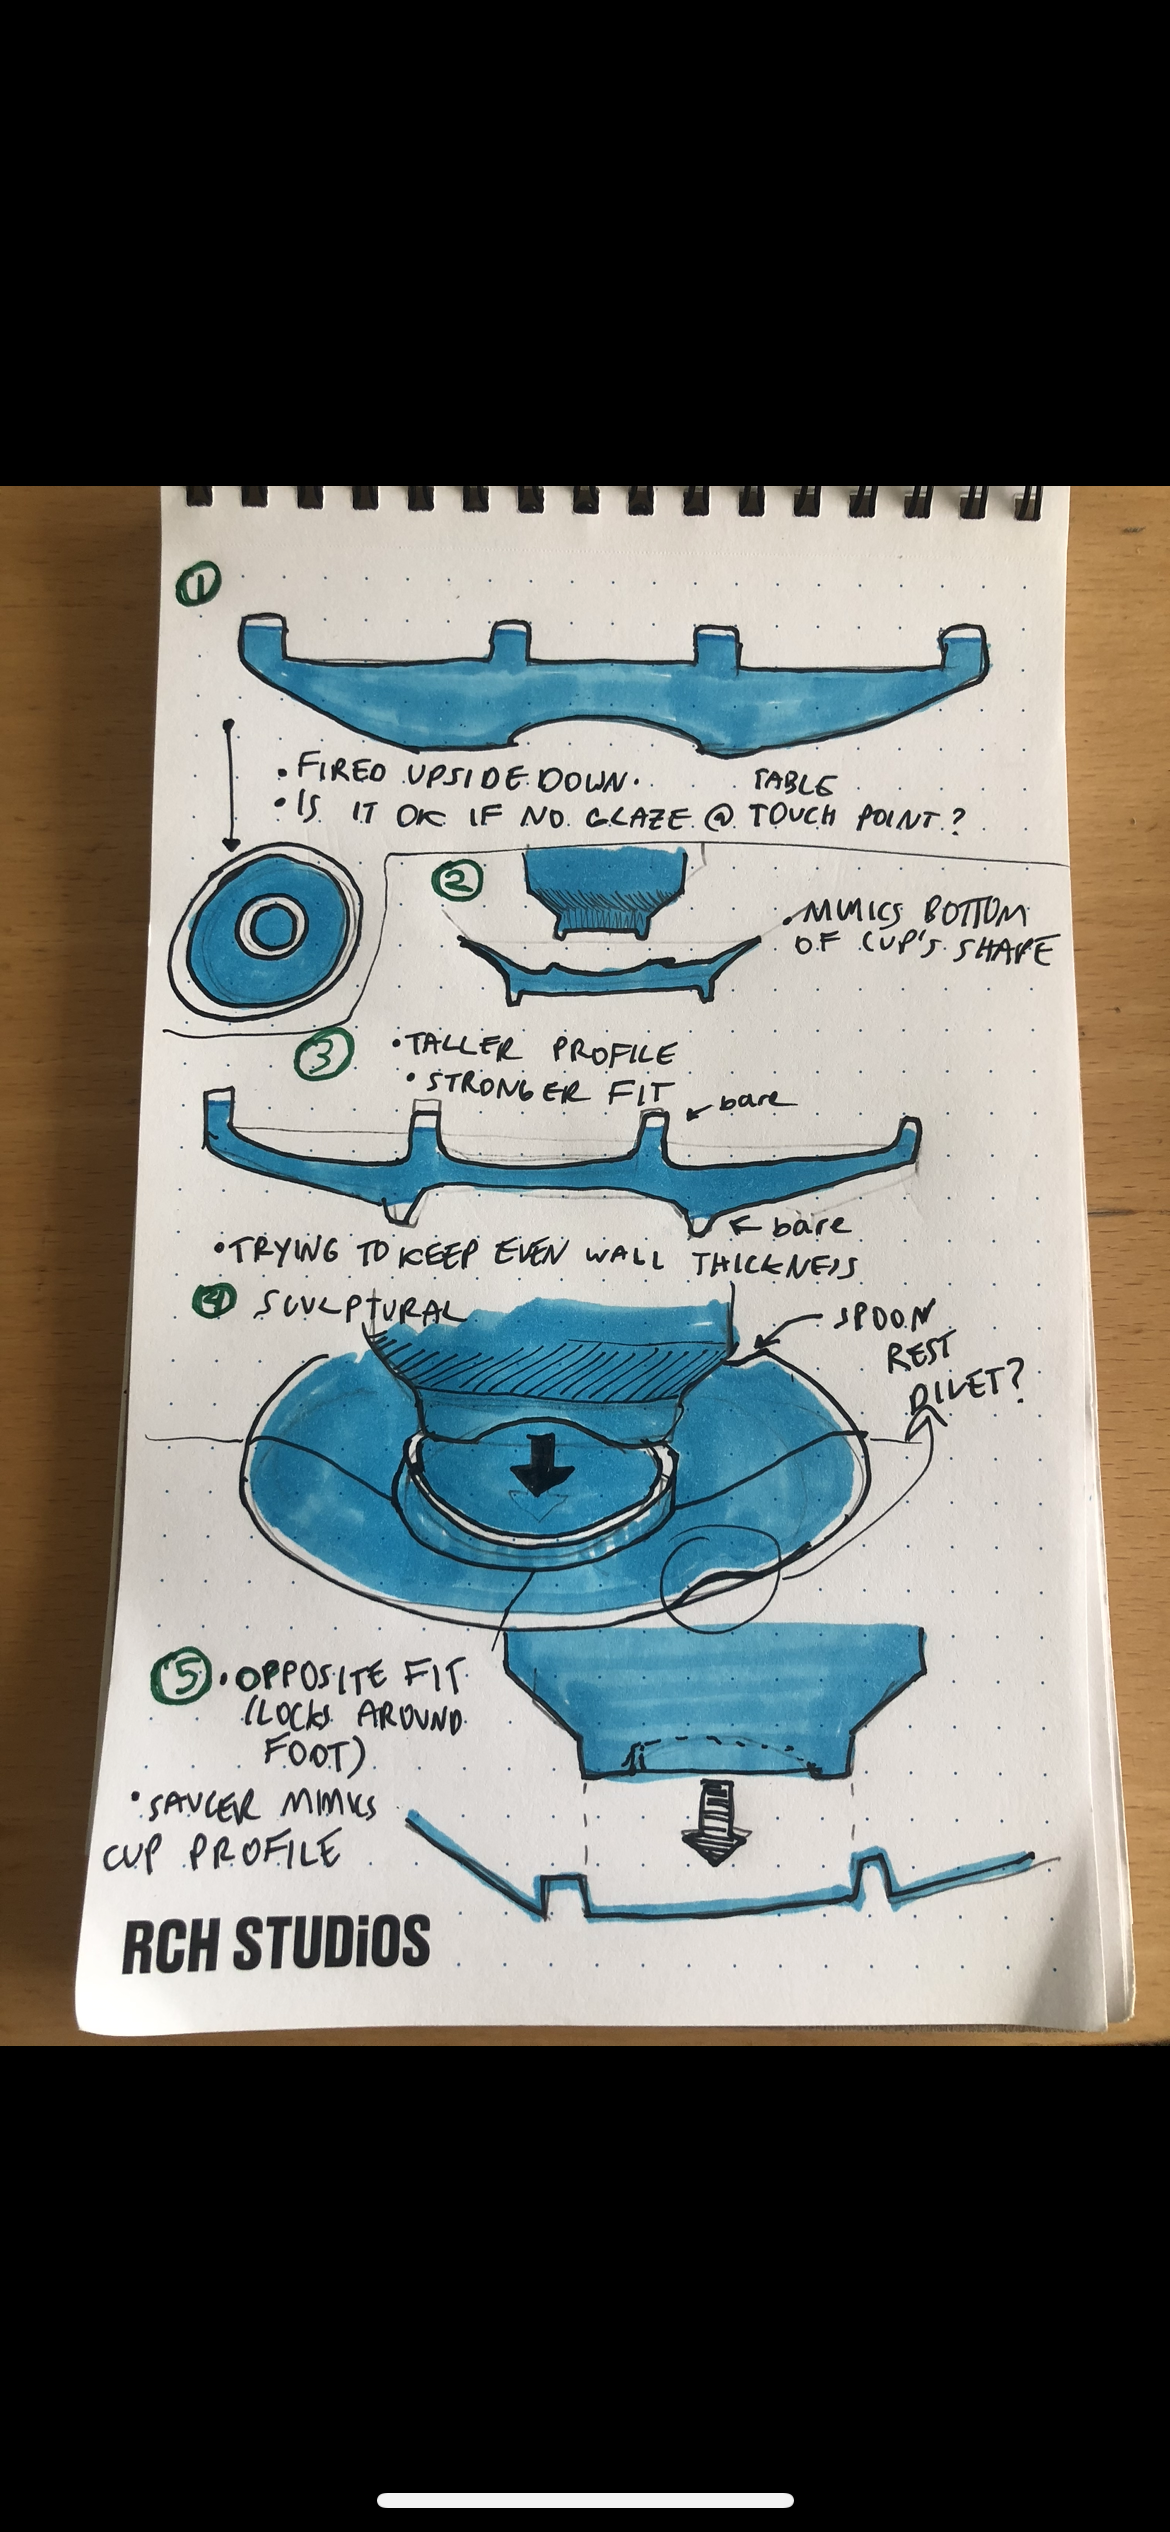 1
• FIRED UPSIDE DOWN.
TABLE
• IS IT OK IF NO GLAZE @ TOUCH POINT?
2
• MIMICS BOTTOM
OF CUP'S SHAPE
3
• TALLER PROFILE
• STRONGER FIT
bare
bare
• TRYING TO KEEP EVEN WALL THICKNESS
4 SCULPTURAL
SPOON
REST
DIVET?
5 • OPPOSITE FIT
(LOCKS AROUND
FOOT)
• SAUCER MIMICS
CUP PROFILE
RCH STUDiOS